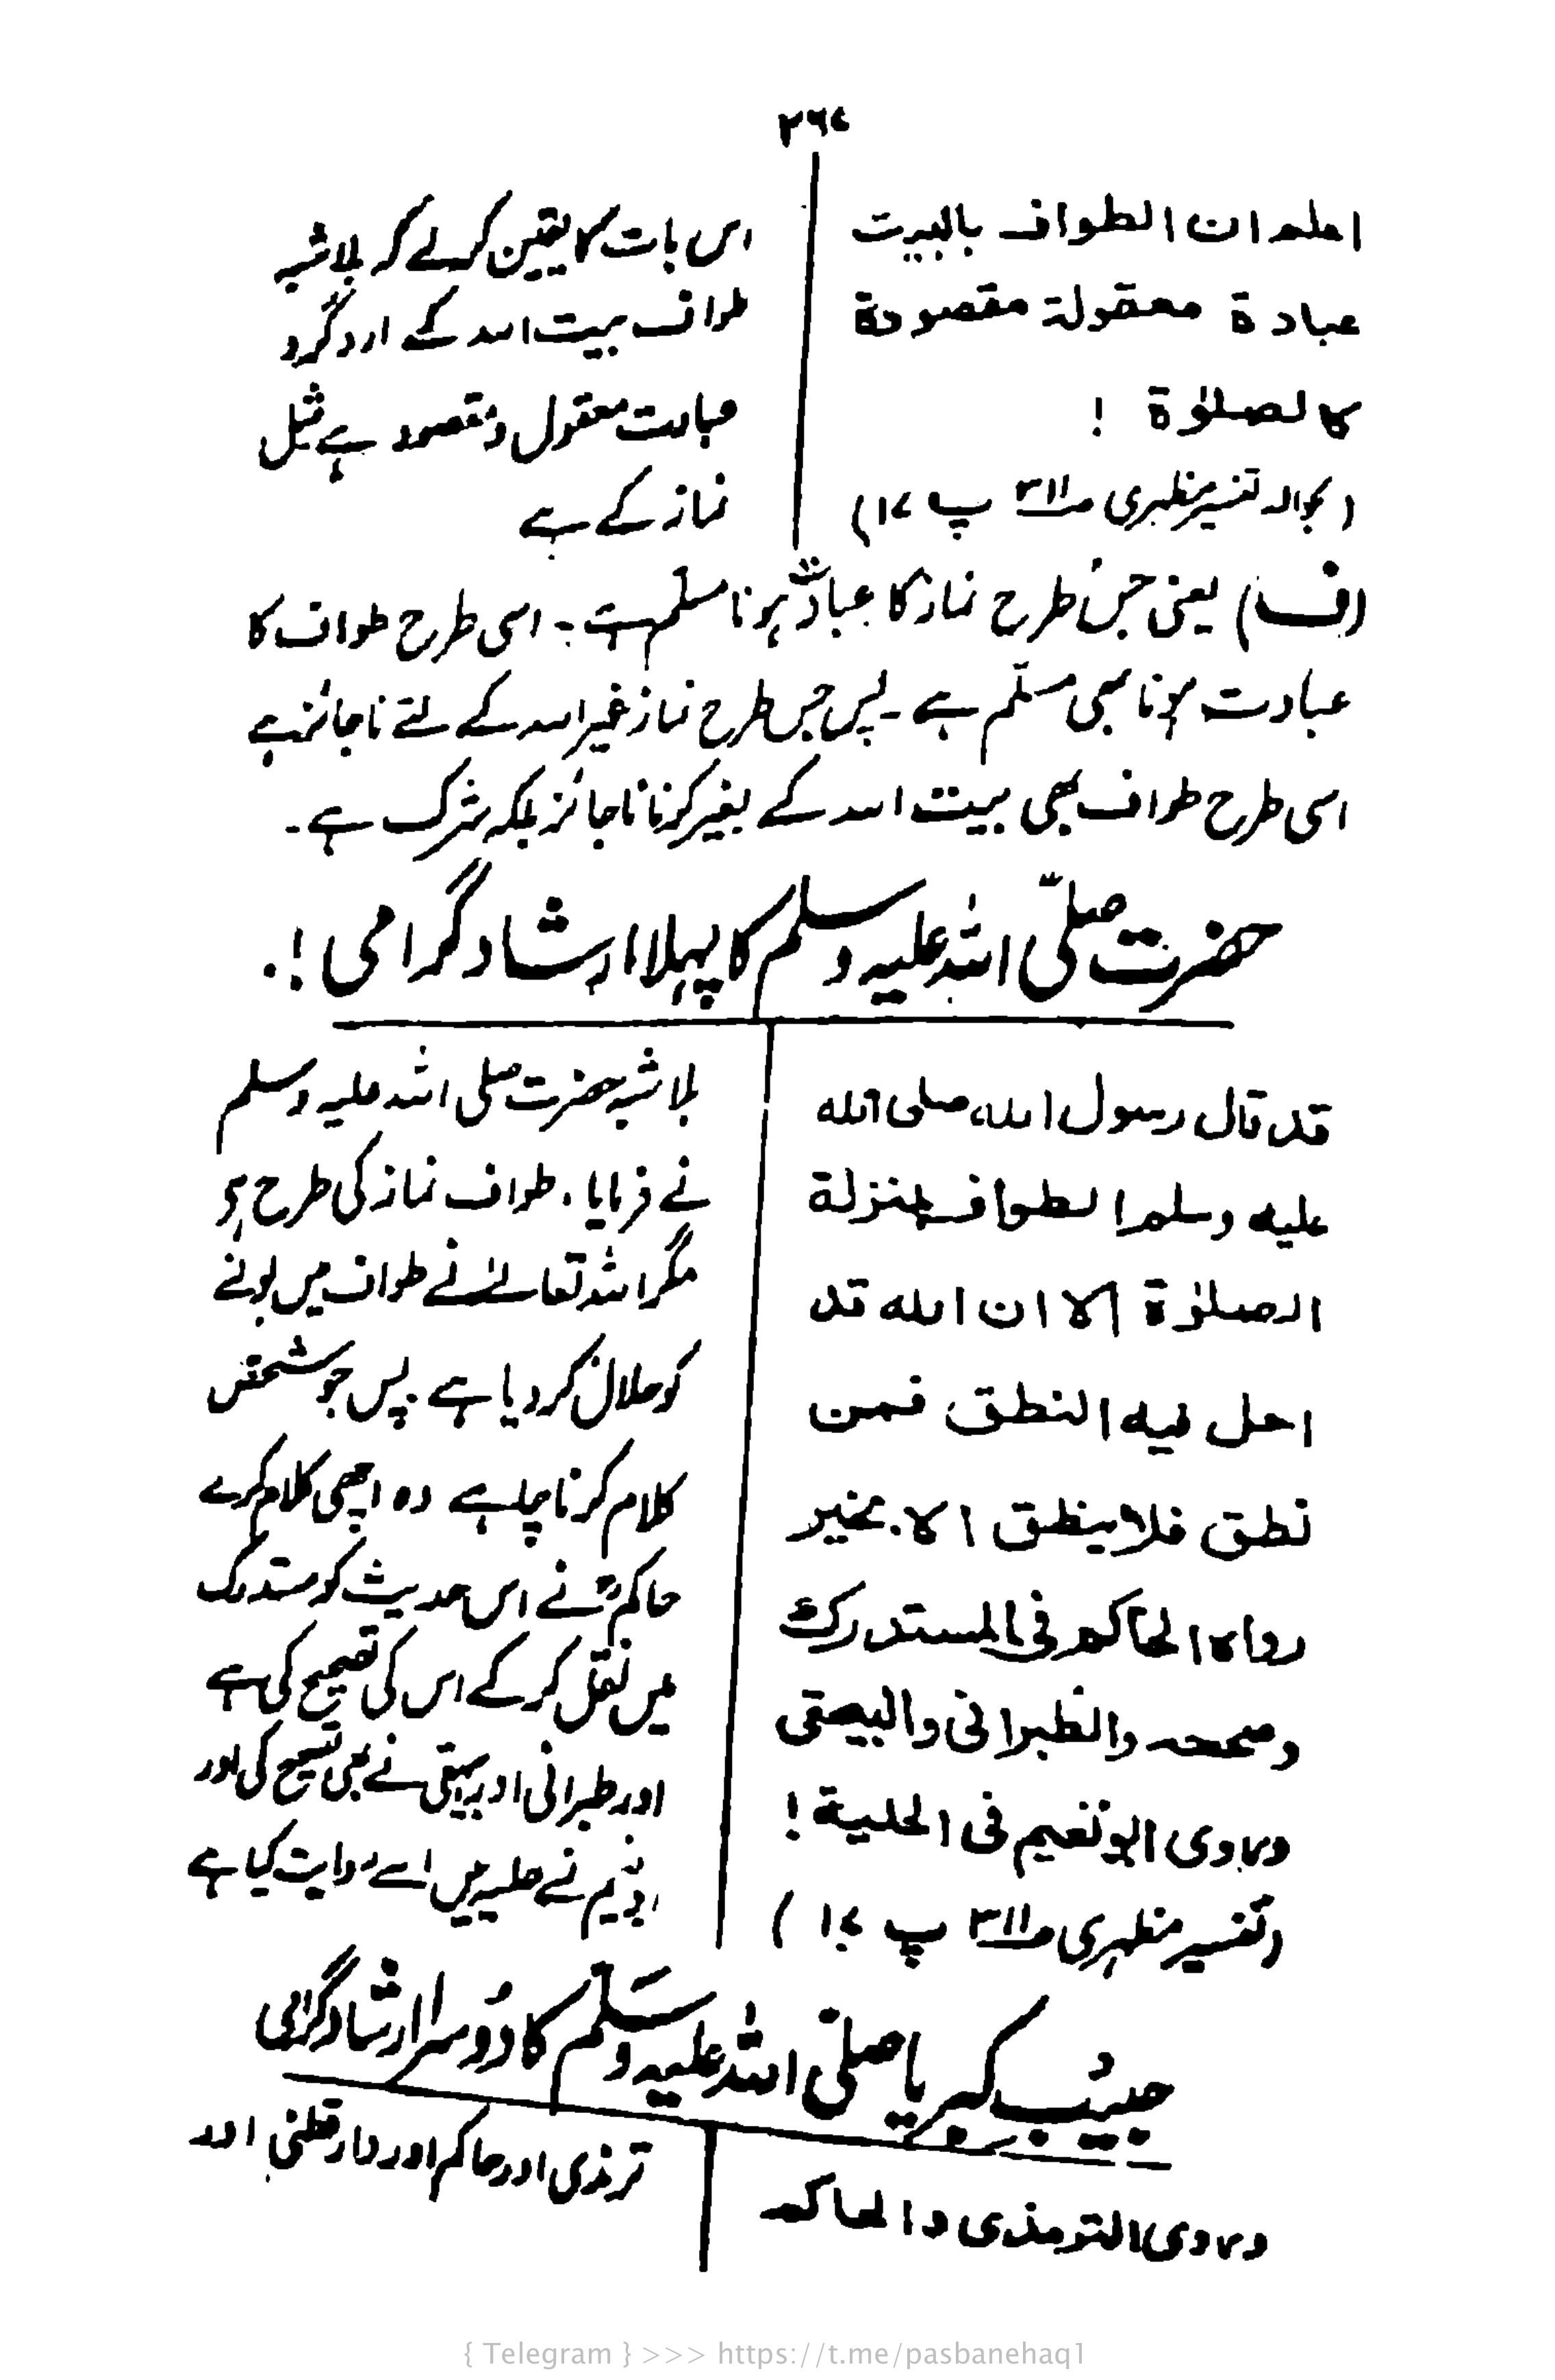 ۲۶۷
اعلم ان الطواف بالبيت
عبادة معقولة مقصودة
كالصلوٰة !
(بحوالہ تفسیر مظہری ص۳۱۱ پ ۱۷)
اس بات کا یقین کرلے کہ بلاشبہ
طواف بیت اللہ کے اردگرد
عبادت معقول و مقصود ہے مثل
نماز کے ہے
(ف) یعنی جس طرح نماز کا عبادت ہونا مسلّم ہے۔ اسی طرح طواف کا
عبادت ہونا بھی مسلّم ہے۔ پس جس طرح نماز غیر اللہ کے لئے ناجائز ہے
اسی طرح طواف بھی بیت اللہ کے بغیر کرنا ناجائز بلکہ شرک ہے۔
حضرت صلّی اللہ علیہ وسلم کا پہلا ارشاد گرامی !.
قد قال رسول الله صلى الله
عليه وسلم الطواف بمنزلة
الصلوٰة الا ان الله قد
احل فيه النطق فمن
نطق فلا ينطق الا بخير
رواه الحاكم في المستدرك
وصححه والطبراني والبيهقي
وروى ابو نعيم في الحلية !
(تفسیر مظہری ص۳۱۱ پ ۱۷)
بلاشبہ حضرت صلی اللہ علیہ وسلم
نے فرمایا. طواف نماز کی طرح ہے
مگر اللہ تعالےٰ نے طواف میں بولنے
کو حلال کر دیا ہے. پس جو شخص
کلام کرنا چاہے وہ اچھی کلام کرے
حاکمؒ نے اس حدیث کو مستدرک
میں نقل کر کے اس کی تصحیح کی ہے
اور طبرانی اور بیہقی نے بھی تصحیح کی اور
ابو نعیم نے حلیہ میں اسے روایت کیا ہے
حبیب کبریا صلی اللہ علیہ وسلم کا دوسرا ارشاد گرامی
وروى الترمذي والحاكم
ترمذی اور حاکم اور دارقطنی اور
{ Telegram } >>> https://t.me/pasbanehaq1